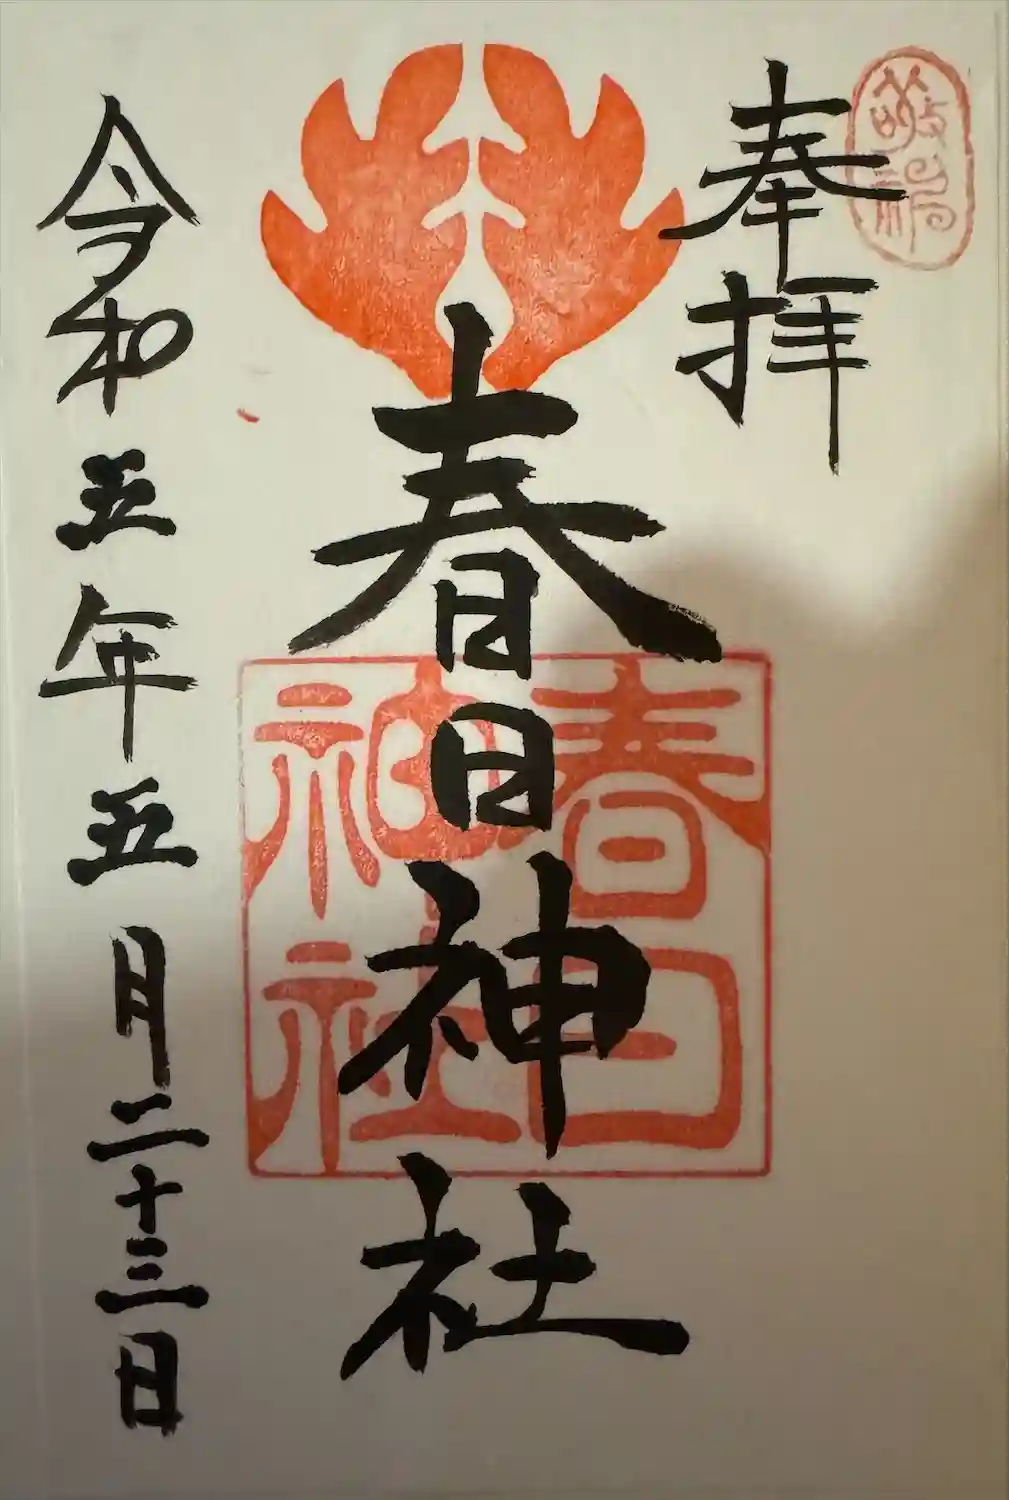 敬神
奉拝
春日神社
春日
神社
令和五年五月二十三日